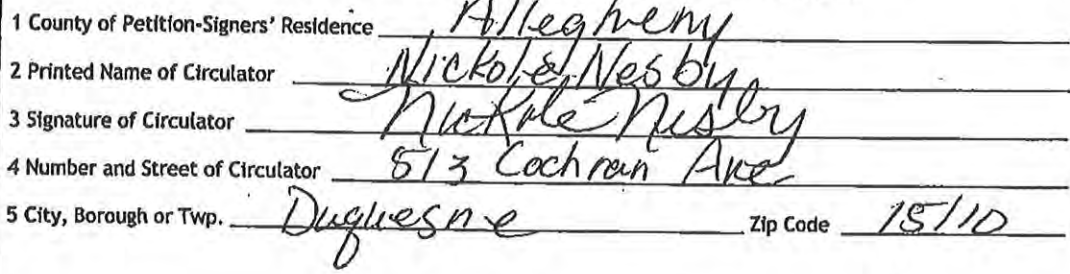 1 County of Petition-Signers' Residence Allegheny
2 Printed Name of Circulator Nickole Nesby
3 Signature of Circulator Nickole Nesby
4 Number and Street of Circulator 513 Cochran Ave
5 City, Borough or Twp. Duquesne Zip Code 15110